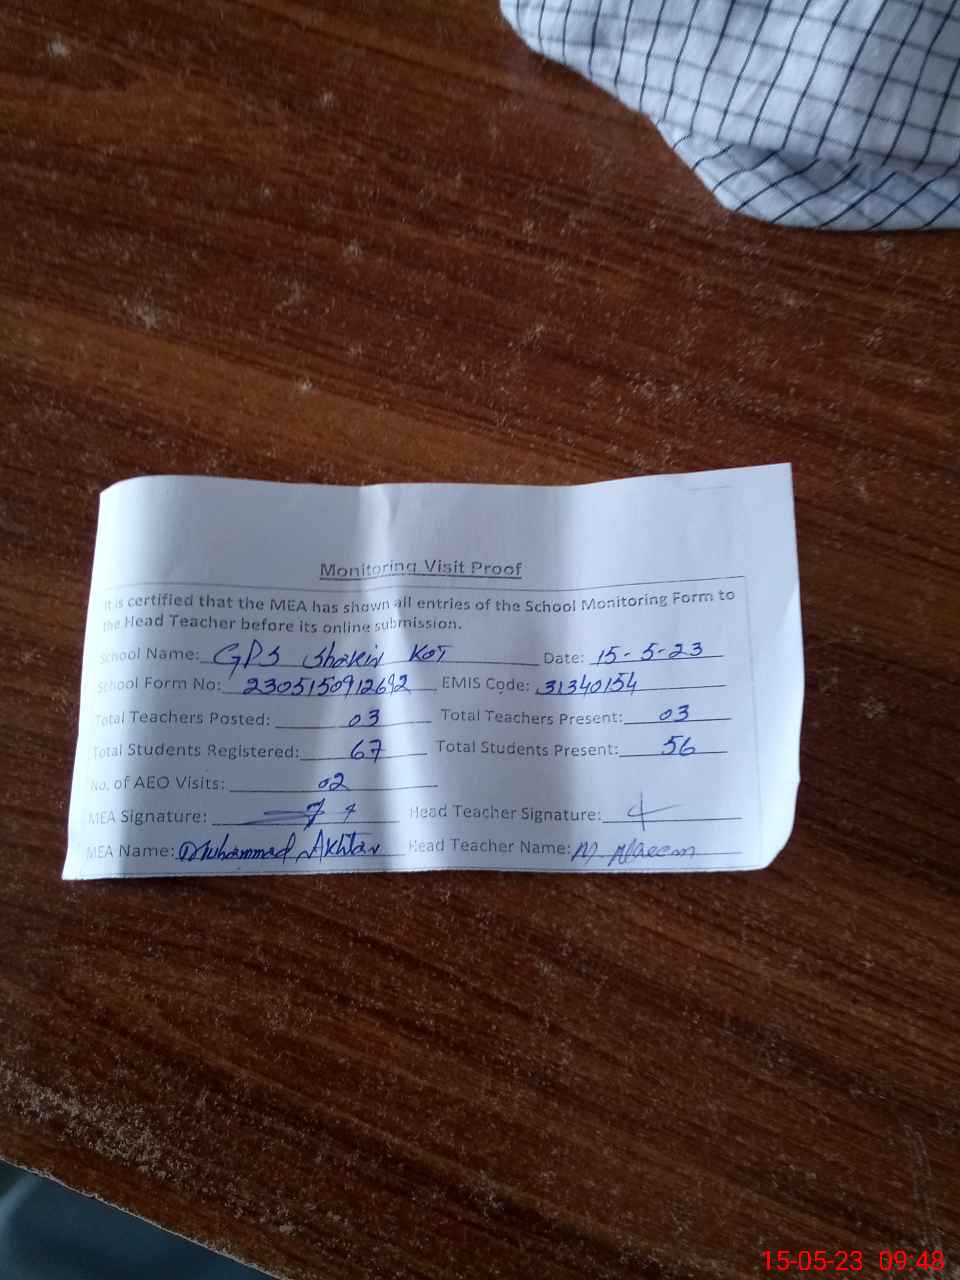 Monitoring Visit Proof
It is certified that the MEA has shown all entries of the School Monitoring Form to
the Head Teacher before its online submission.
School Name: GPS Shakir Kot Date: 15-5-23
School Form No: 2305150912692 EMIS Code: 31340154
Total Teachers Posted: 03 Total Teachers Present: 03
Total Students Registered: 67 Total Students Present: 56
No. of AEO Visits: 02
MEA Signature: Head Teacher Signature:
MEA Name: Muhammad Akhtar Head Teacher Name: M Naeem
15-05-23 09:48